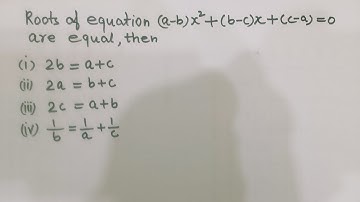 Roots of equation (a-b)x²+(b-c)x+(c-a)=0
are equal, then
(i) 2b = a+c
(ii) 2a = b+c
(iii) 2c = a+b
(iv) 1/b = 1/a + 1/c